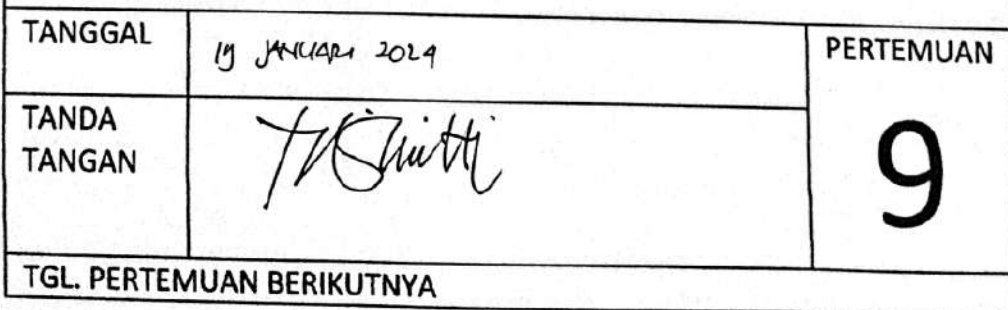 TANGGAL
19 JANUARI 2024
PERTEMUAN
TANDA
TANGAN
9
TGL. PERTEMUAN BERIKUTNYA